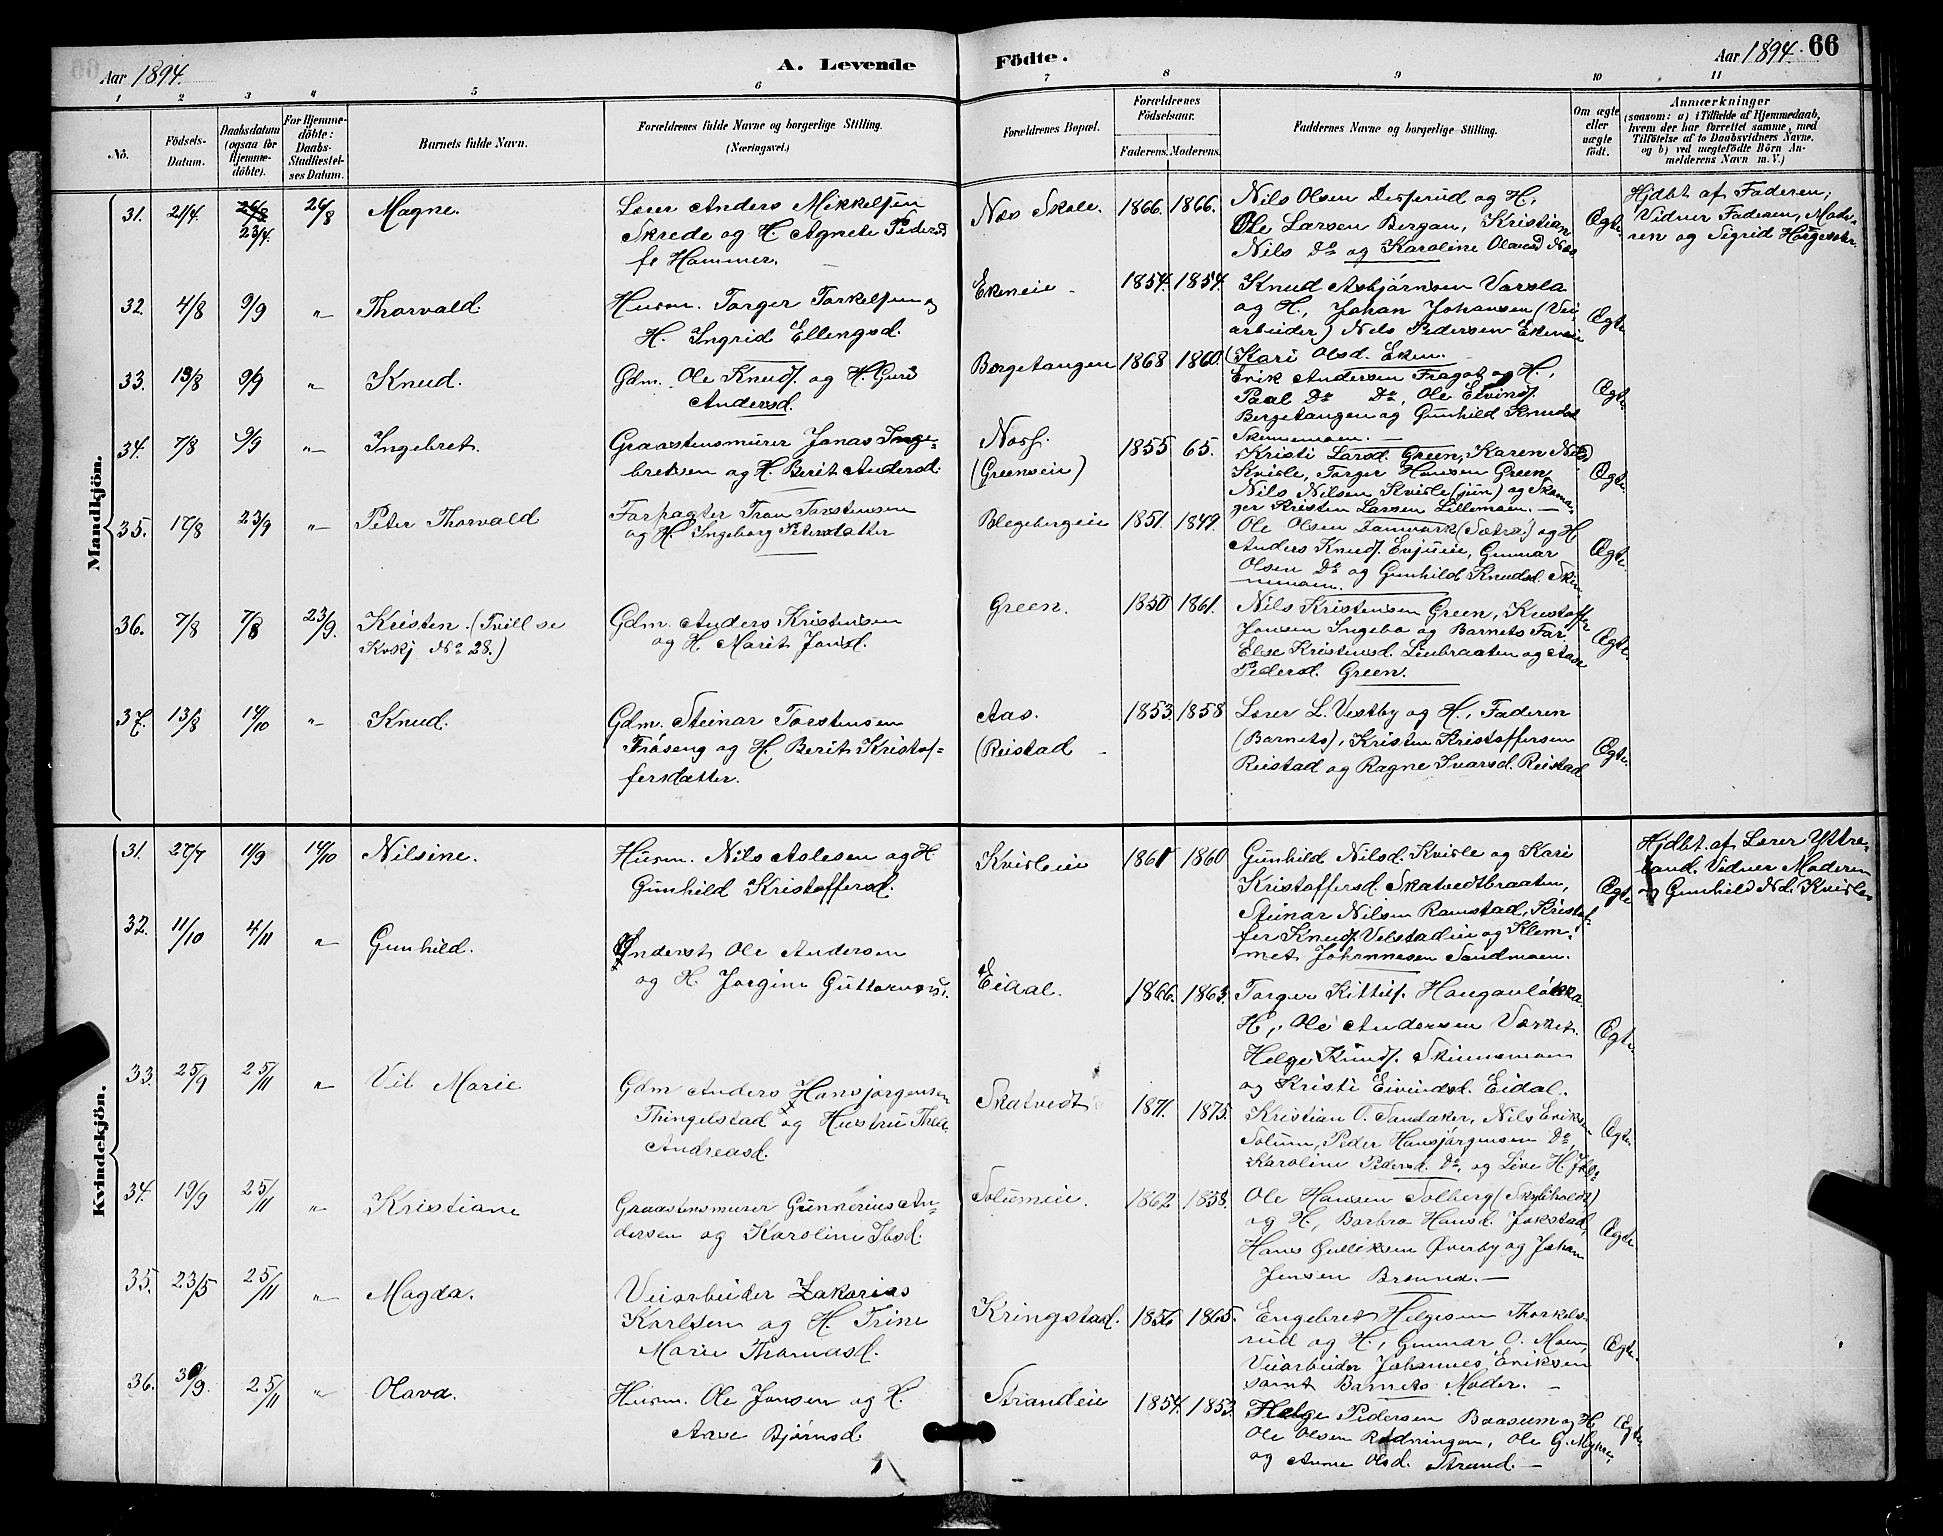 Aar 1894.
A. Levende
Födte.
Aar 1894. 66
1 2 3 4 5 6 7 8 9 10 11
No.
Födsels-Datum.
Daabsdatum (ogsaa for Hjemme-döbte).
For Hjemme-döbte: Daabs-Stadfæstel-ses Datum.
Barnets fulde Navn.
Forældrenes fulde Navne og borgerlige Stilling. (Næringsvei.)
Forældrenes Bopæl.
Forældrenes Födselsaar.
Faderens. Moderens.
Faddernes Navne og borgerlige Stilling.
Om ægte eller uægte födt.
Anmærkninger
(saasom: a) i Tilfælde af Hjemmedaab,
hvem der har forrettet samme, med
Tilföielse af to Daabsvidners Navne,
og b) ved uægtefödte Börn An-
melderens Navn m. V.)
Mandkjön.
31. 21/4. 26/8 23/4. 26/8 Magne.
Lærer Anders Mikkelsen
Skrede og H. Agnete Pedersd
f. Hammer.
Næs Skole. 1866. 1866.
Nils Olsen og H.,
Ole Larsen Bergan, Kristian
Nils Do og Karoline Olavsd Næs
Ægte.
Hjdbt af Faderen,
Vidner Faderen, Mode-
ren og Sigrid
32. 4/8 9/9 " Thorvald.
Husm. Torger Torkelsen og
H. Ingrid Ellengsd.
Ekeneie 1854. 1854.
Knud Asbjørnsen Varsla
og H., Johan Johansen (Vei-
arbeider) Nils Pedersen Ekeneie
Kari Olsd. Eken.
Ægte
33. 13/8 9/9 " Knud.
Gdm. Ole Knuds. og H. Guri
Andersd.
Bergetangen 1868 1860
Erik Andersen Fragot og H.,
Paal Do Do, Ole Eivinds.
Bergetangen og Gunhild Knudsd
Skinnemoen.
Ægte
34. 7/8 9/9 " Ingebret.
Graastensmurer Jonas Inge-
bretsen og H. Berit Andersd.
Norf.
(Greeneie) 1855 65.
Kristi Larsd. Green, Karen Nilsd
Kvisle, Torger Hansen Green,
Nils Nilsen Kvisle (jun) og Skoma-
ger Kristen Larsen Lillemoen.
Ægte.
35. 17/8 23/9 " Peter Thorvald
Forpagter Tron Torstensen
og H. Ingeborg Petersdatter
Blegebergeie 1851. 1849.
Ole Olsen Danmark (Sætre) og H
Anders Knuds. Evjueie, Gunnar
Olsen Do og Gunhild Knudsd. Skin-
nemoen.
Ægte.
36. 7/8 7/8 23/9. Kristen. (Tvill se
Kvkj No 28.)
Gdm. Anders Kristensen
og H. Marit Jonsd.
Green. 1850 1861.
Nils Kristensen Green, Kristoffer
Jonsen Ingebo og Barnets Far,
Else Kristensd. Liebraaten og Aase
Pedersd. Green.
Ægte.
37. 13/8 14/10 " Knud.
Gdm. Steinar Torstensen
Frøseng og H. Berit Kristof-
fersdatter.
Aas.
(Reistad 1853. 1858
Lærer L. Vestby og H., Faderen
(Barnets), Kristen Kristoffersen
Reistad og Ragne Ivarsd. Reistad
Ægte.
Kvindekjön.
31. 27/7 11/9 14/10 Nilsine.
Husm. Nils Aslesen og H
Gunhild Kristoffersd.
Kvisleeie 1861 1860
Gunhild Nilsd. Kvisle og Kari
Kristoffersd. Skatvedtbraaten,
Steinar Nilsen Ramstad, Kristof-
fer Knuds. Velstadeie og Klem-
met Johannesen Sandmoen.
Ægte
Hjdbt. af Lærer Yttre-
sand. Vidner Moderen
og Gunhild Nd. Kvisle
32. 11/10 4/11 " Gunhild.
Inderst Ole Andersen
og H. Jørgine Guttormsd.
Eidal. 1866. 1863.
Torger Kittils.
H., Ole Andersen Værket.
Helge Knuds. Skinnemoen
og Kristi Eivindsd. Eidal.
Ægte.
33. 25/9 25/11 " Vil Marie
Gdm Anders Hansjørgensen
Thingelstad og Hustru Thea
Andreasd.
Skatvedt 1871. 1875.
Kristian O. Sandaker, Nils Eriksen
Solum, Peder Hansjørgensen Do,
Karoline Pedersd. Do, og Live H.
Ægte.
34. 19/9 25/11 " Kristiane
Graastensmurer Gunnerius An-
dersen og Karoline Ibsd.
Solumeie. 1862 1858.
Ole Hansen Solberg
og H., Barbro Hansd. Jokstad,
Hans Gulliksen Øverby og Johan
Jensen
Ægte
35. 23/5 25/11 " Magda.
Veiarbeider Zakarias
Karlsen og H. Trine
Marie Thomasd.
Kringstad. 1856 1865.
Engebret Helgesen Thorkels-
rud og H., Gunnar O. Moen,
Veiarbeider Johannes Eriksen
samt Barnets Moder.
Ægte.
36. 30/9. 25/11 " Olava.
Husm. Ole Jonsen og H.
Anne Bjørnsd.
Strandeie 1854. 1853.
Helge Pedersen Baasum og H
Ole Olsen Rødningen, Ole G. Myhre,
og Anne Olsd. Strand.
Ægte